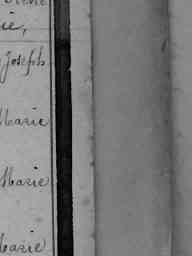 ie,
Joseph
Marie
Marie
Marie